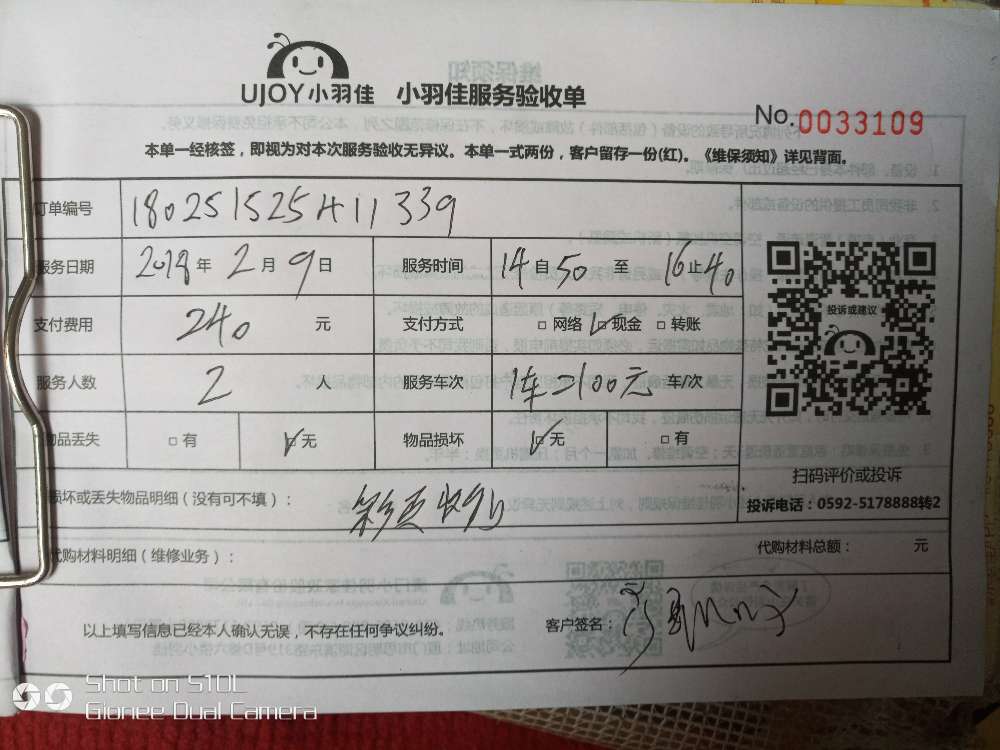 UJOY小羽佳 小羽佳服务验收单
No.0033109
本单一经核签，即视为对本次服务验收无异议。本单一式两份，客户留存一份(红)。《维保须知》详见背面。
订单编号 180251525411339
服务日期 2018年2月9日 服务时间 14自50至16止40
支付费用 240元 支付方式 □网络 ☑现金 □转账
服务人数 2人 服务车次 1车=100元 车/次
物品丢失 □有 ☑无 物品损坏 ☑无 □有
投诉或建议
扫码评价或投诉
投诉电话：0592-5178888转2
损坏或丢失物品明细（没有可不填）：
代购材料明细（维修业务）： 代购材料总额： 元
以上填写信息已经本人确认无误，不存在任何争议纠纷。 客户签名：
Shot on S10L
Gionee Dual Camera